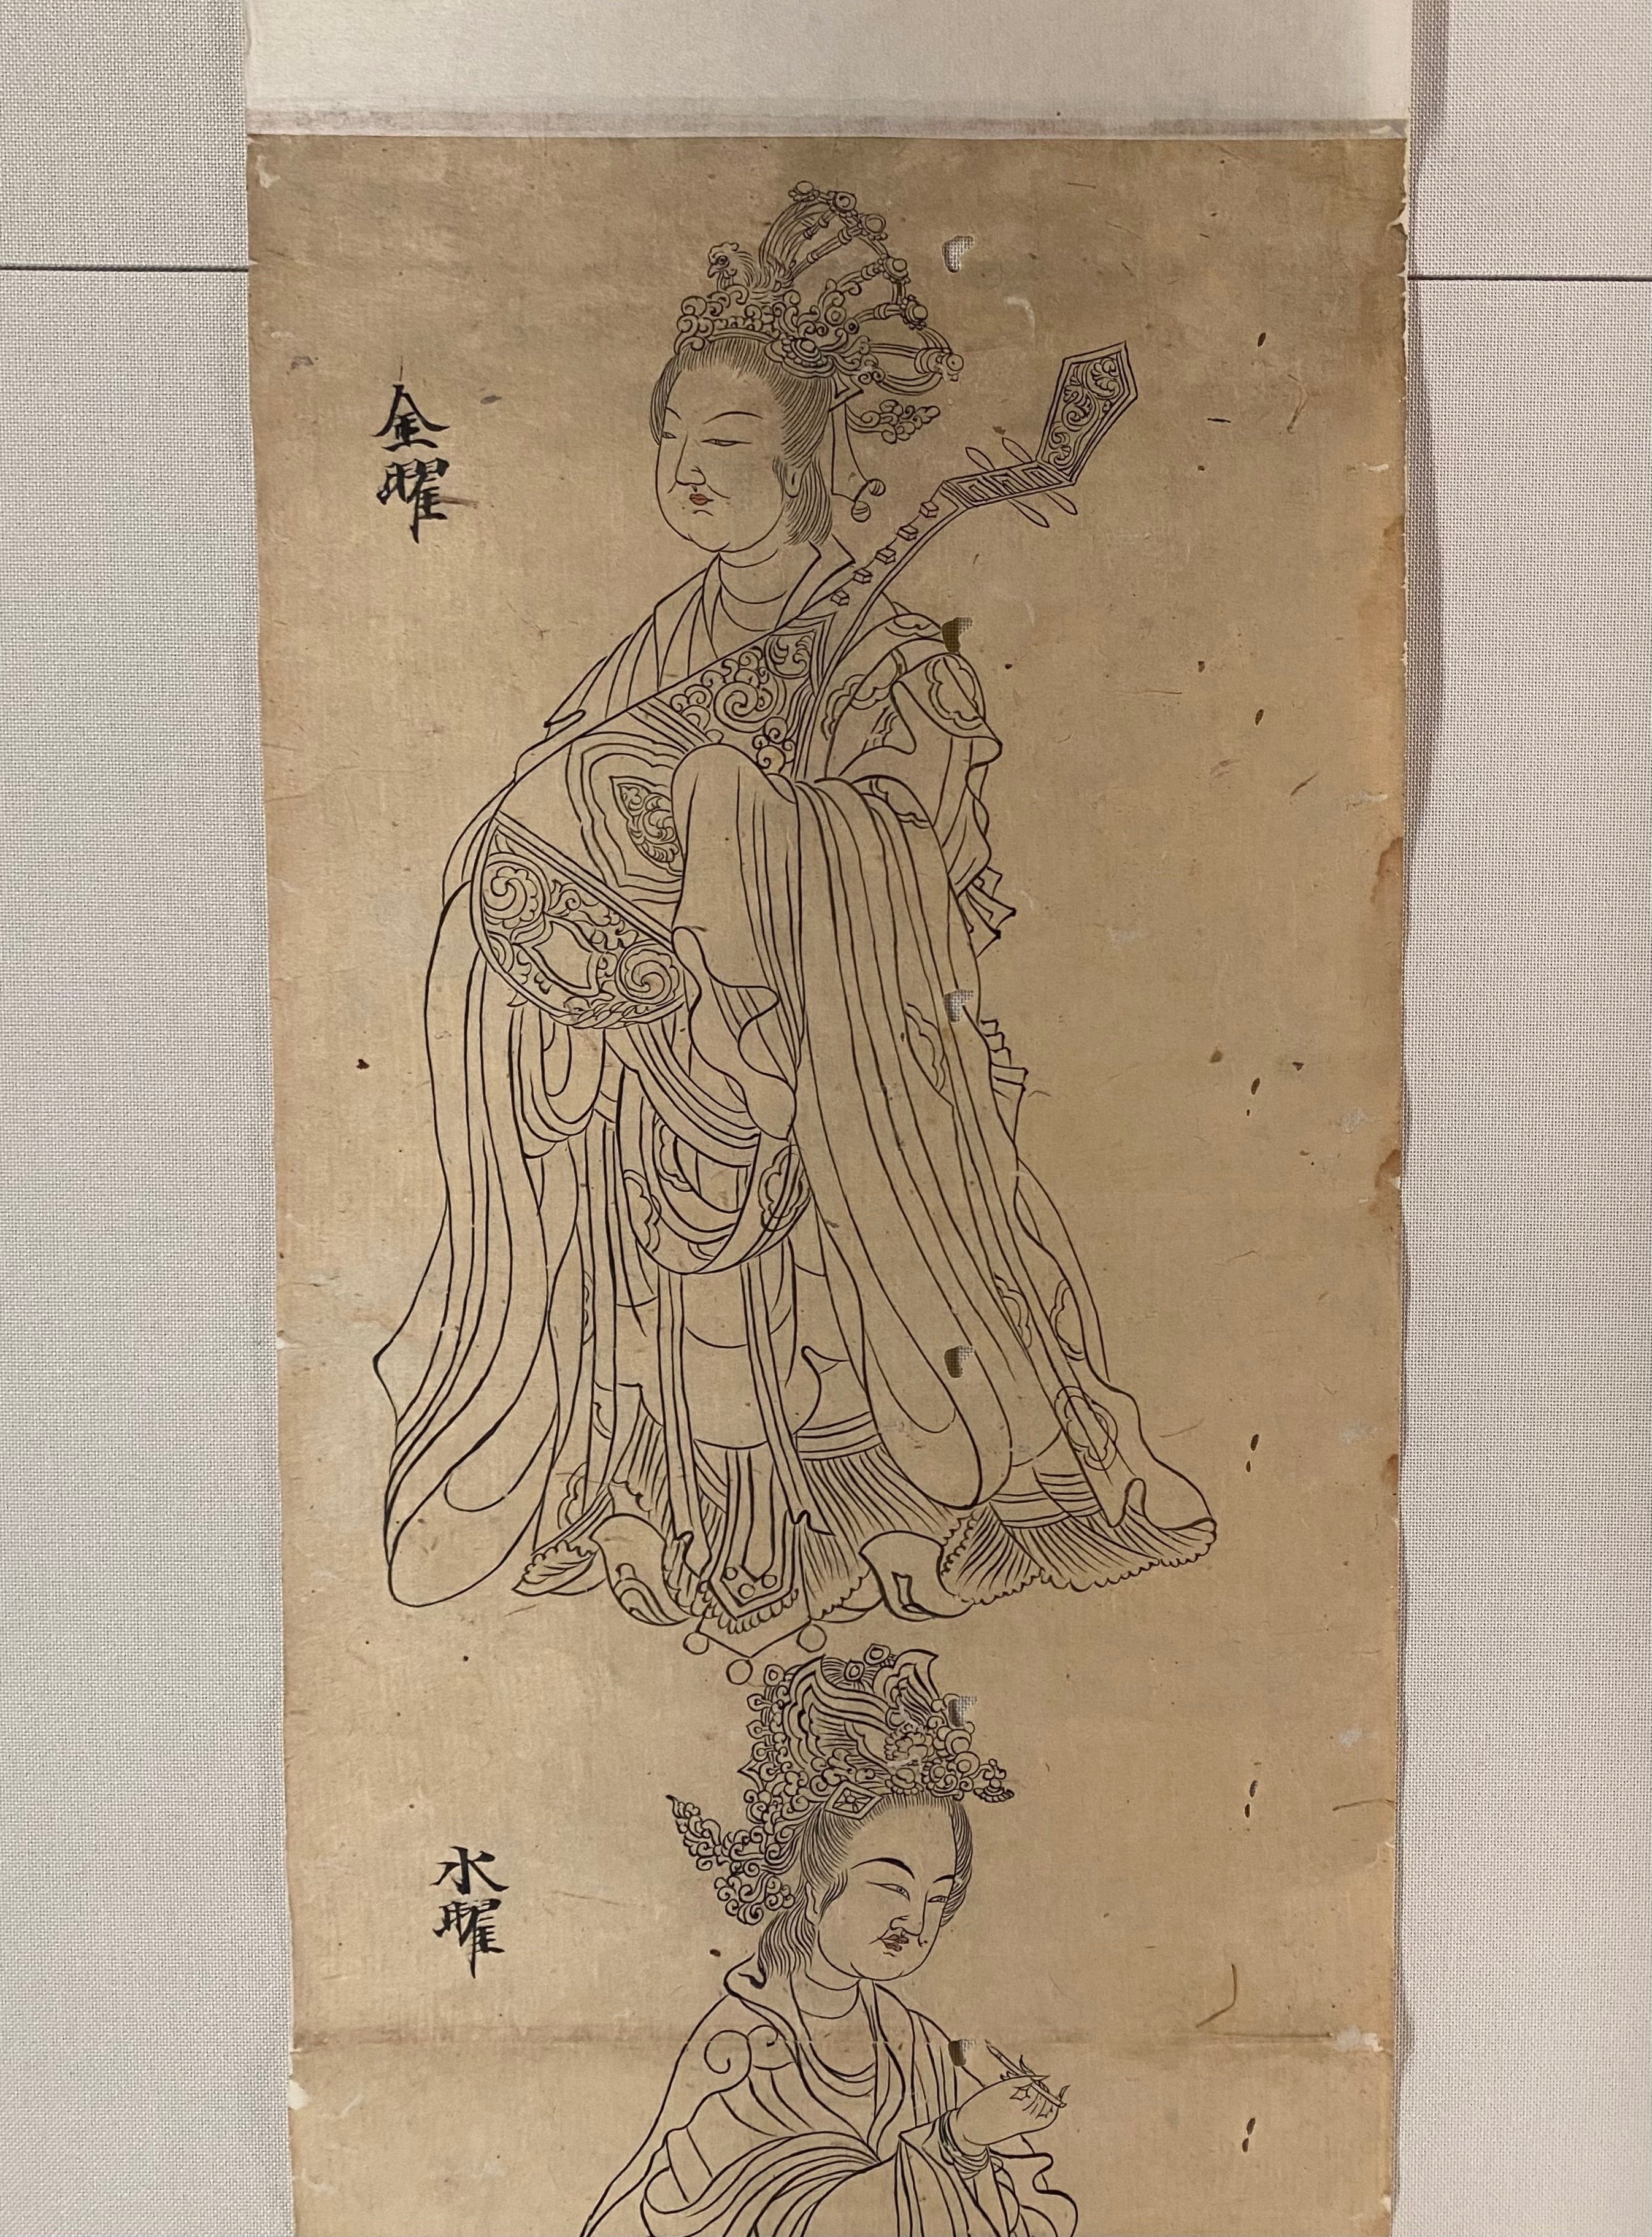 金曜
水曜